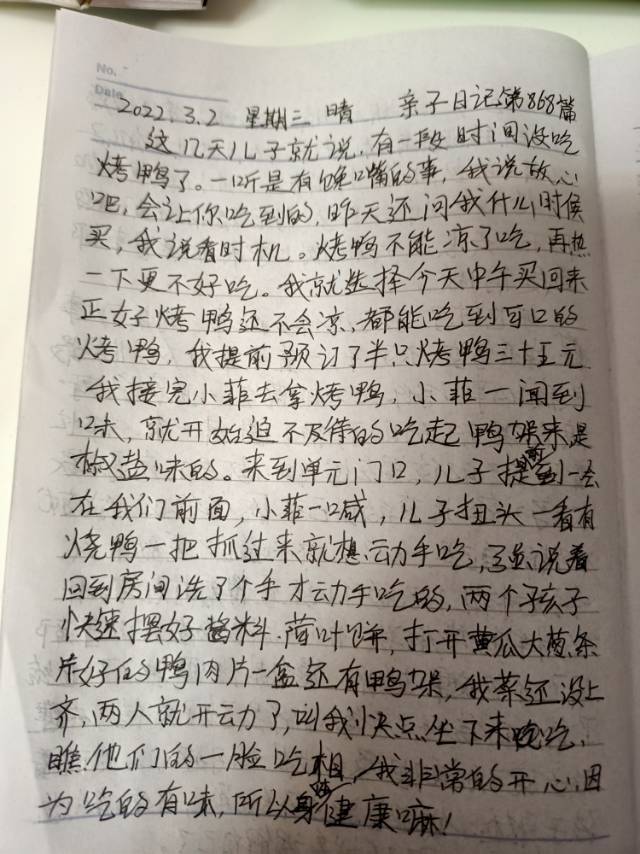 No.
Date
2022.3.2 星期三 晴 亲子日记第868篇
这几天儿子就说,有一段时间没吃
烤鸭了。一听是有馋嘴的事,我说放心
吧,会让你吃到的,昨天还问我什么时候
买,我说看时机。烤鸭不能凉了吃,再热
一下更不好吃。我就选择今天中午买回来
正好烤鸭还不会凉,都能吃到可口的
烤鸭,我提前预订了半只烤鸭三十五元
我接完小菲去拿烤鸭,小菲一闻到
口味,就开始迫不及待的吃起鸭架来,是
椒盐味的。来到单元门口,儿子提前到一会
在我们前面,小菲一喊,儿子扭头一看有
烧鸭一把抓过来就想动手吃,说着
回到房间洗了个手才动手吃的,两个孩子
快速摆好酱料.荷叶饼,打开黄瓜大葱条
片好的鸭肉片一盒还有鸭架,我菜还没上
齐,两人就开动了,叫我快点坐下来吃,
瞧他们的一脸吃相,我非常的开心,因
为吃的有味,所以身体健康嘛!